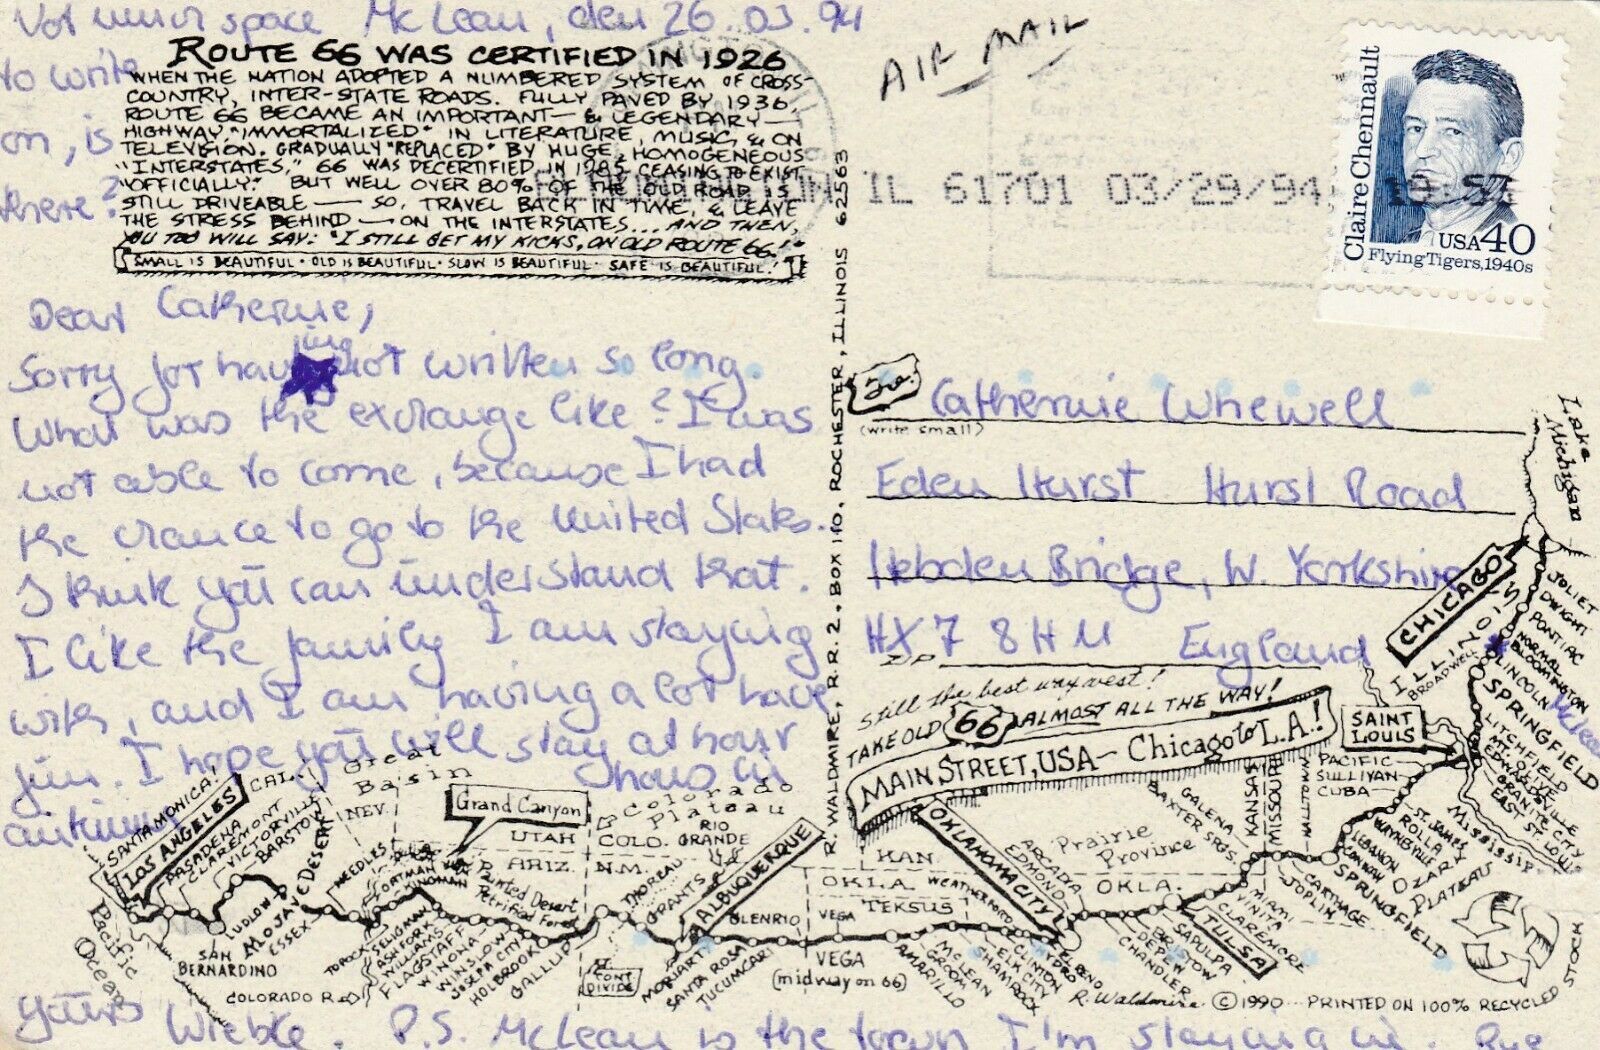 Not much space McLean, den 26.03.94
to write
on, is
there?
ROUTE 66 WAS CERTIFIED IN 1926
WHEN THE NATION ADOPTED A NUMBERED SYSTEM OF CROSS-
COUNTRY, INTER-STATE ROADS. FULLY PAVED BY 1936,
ROUTE 66 BECAME AN IMPORTANT — & LEGENDARY —
HIGHWAY, "IMMORTALIZED" IN LITERATURE, MUSIC, & ON
TELEVISION. GRADUALLY "REPLACED" BY HUGE, HOMOGENEOUS
"INTERSTATES," 66 WAS DECERTIFIED IN 1985, CEASING TO EXIST
"OFFICIALLY." BUT WELL OVER 80% OF THE OLD ROAD IS
STILL DRIVEABLE — SO, TRAVEL BACK IN TIME, & LEAVE
THE STRESS BEHIND — ON THE INTERSTATES... AND THEN,
YOU TOO WILL SAY: "I STILL GET MY KICKS, ON OLD ROUTE 66!"
SMALL IS BEAUTIFUL · OLD IS BEAUTIFUL · SLOW IS BEAUTIFUL · SAFE IS BEAUTIFUL!
AIR MAIL
IL 61701 03/29/94
Claire Chennault
USA 40
Flying Tigers, 1940s
Dear Catherine,
Sorry for having not written so long.
What was the exchange like? I was
not able to come, because I had
the chance to go to the United States.
I think you can understand that.
I like the family I am staying
with, and I am having a lot have
fun. I hope you will stay at hour
hous in
autumn
yours Wiebke. P.S. McLean is the town I'm staying in.
R. WALDMIRE, R.R. 2, BOX 110, ROCHESTER, ILLINOIS 62563
To:
(write small)
Catherine Whewell
Eden Hurst Hurst Road
Hebden Bridge, W. Yorkshire
HX7 8HM England
ZIP
Still the best way west!
TAKE OLD 66 ALMOST ALL THE WAY!
MAIN STREET, USA — Chicago to L.A.!
Lake Michigan
CHICAGO
ILLINOIS
JOLIET
DWIGHT
PONTIAC
NORMAL
BLOOMINGTON
McLean
LINCOLN
BROADWELL
SPRINGFIELD
LITCHFIELD
MT. OLIVE
EDWARDSVILLE
GRANITE CITY
EAST ST. LOUIS
SAINT LOUIS
Mississippi
PACIFIC
SULLIVAN
CUBA
ST. JAMES
ROLLA
WAYNESVILLE
LEBANON
CONWAY
OZARK PLATEAU
SPRINGFIELD
HALLTOWN
CARTHAGE
JOPLIN
MISSOURI
KANSAS
GALENA
BAXTER SPGS.
Prairie Province
MIAMI
VINITA
CLAREMORE
TULSA
SAPULPA
BRISTOW
DEPEW
CHANDLER
OKLA.
ARCADIA
EDMOND
OKLAHOMA CITY
EL RENO
HYDRO
WEATHERFORD
CLINTON
ELK CITY
KAN.
OKLA.
TEKSUS
SHAMROCK
McLEAN
GROOM
AMARILLO
VEGA
VEGA
(midway on 66)
GLENRIO
TUCUMCARI
SANTA ROSA
MORIARTY
ALBUQUERQUE
RIO GRANDE
GRANTS
THOREAU
CONT. DIVIDE
GALLUP
N.M.
COLO.
Colorado Plateau
UTAH
ARIZ.
Grand Canyon
Painted Desert
Petrified Forest
HOLBROOK
JOSEPH CITY
WINSLOW
WINONA
FLAGSTAFF
WILLIAMS
ASHFORK
SELIGMAN
KINGMAN
OATMAN
TOPOCK
NEEDLES
COLORADO R.
Great Basin
NEV.
CAL.
ESSEX
MOJAVE DESERT
LUDLOW
BARSTOW
VICTORVILLE
SAN BERNARDINO
CLAREMONT
PASADENA
LOS ANGELES
SANTA MONICA!
Pacific Ocean
R. Waldmire © 1990 PRINTED ON 100% RECYCLED STOCK